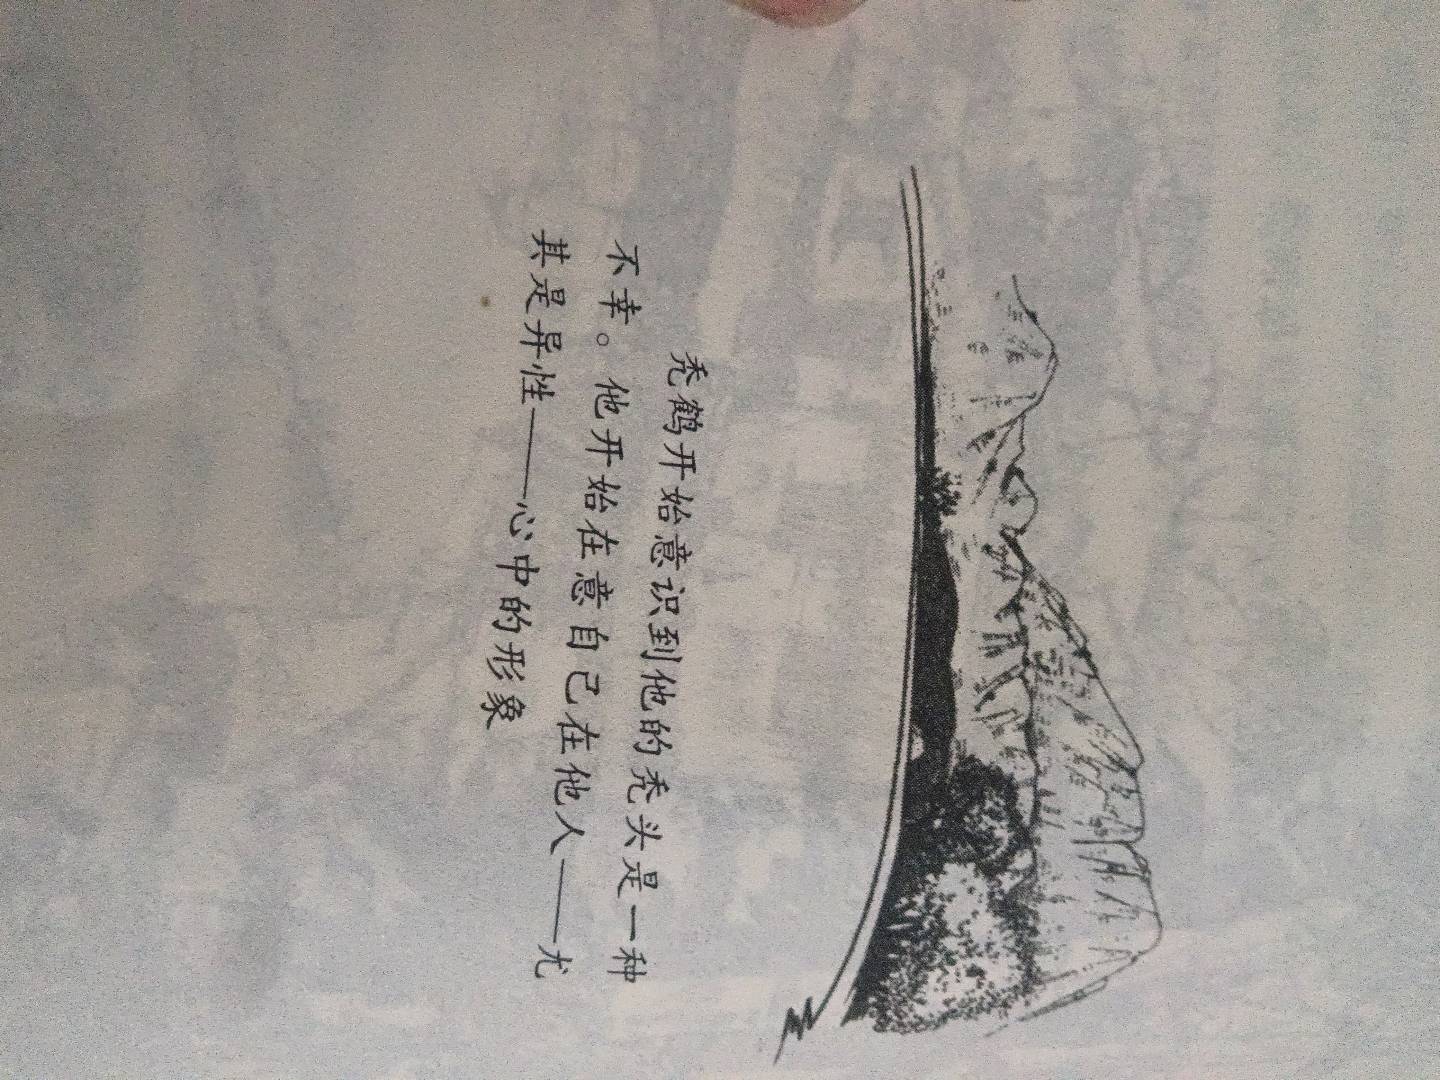 秃鹤开始意识到他的秃头是一种
不幸。他开始在意自己在他人——尤
其是异性——心中的形象